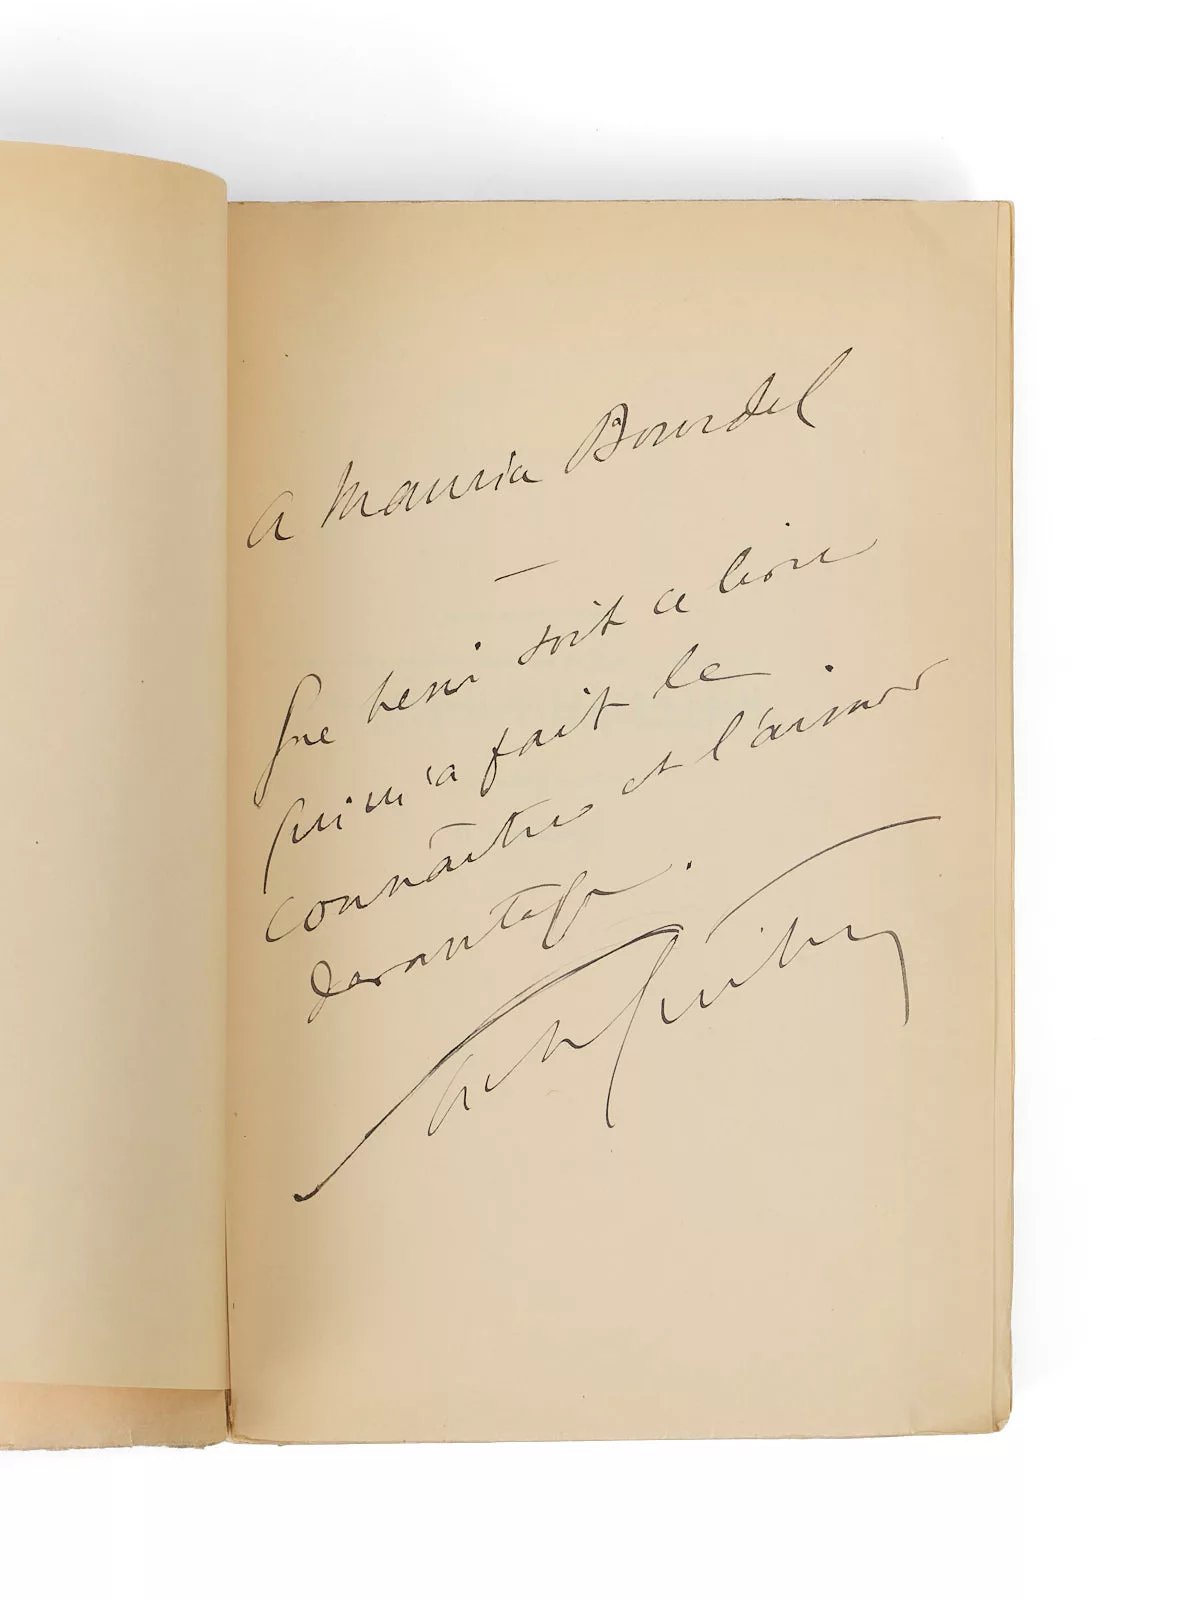 A Maurice Bourdel
—
Que béni soit ce livre
qui m'a fait le
connaître et l'aimer
davantage.
Sacha Guitry